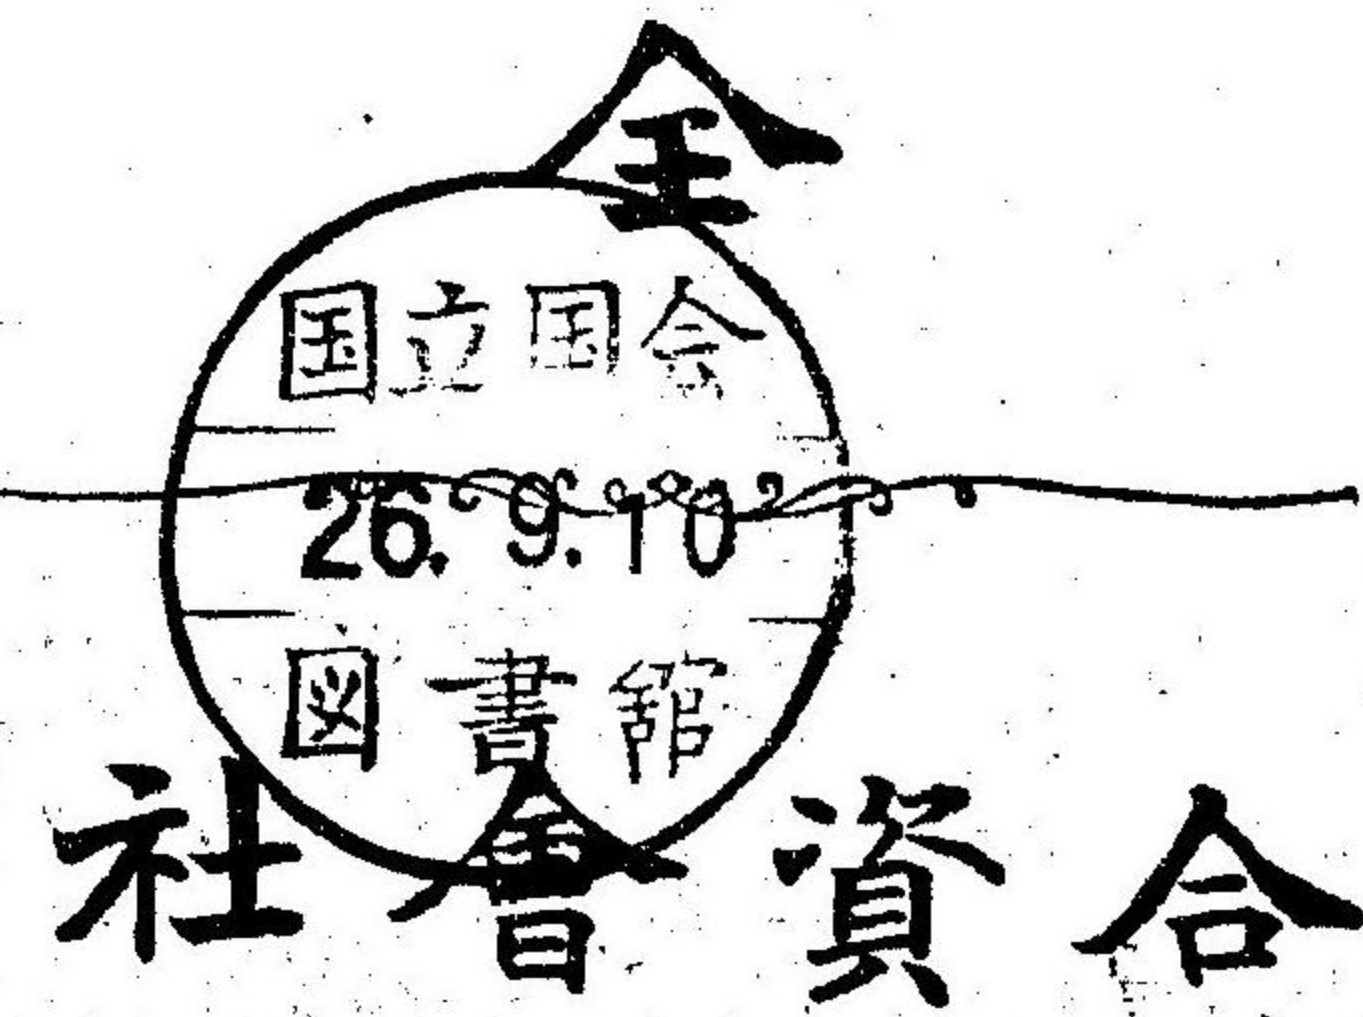 全
国立国会
26. 9. 10
図書館
合資會社